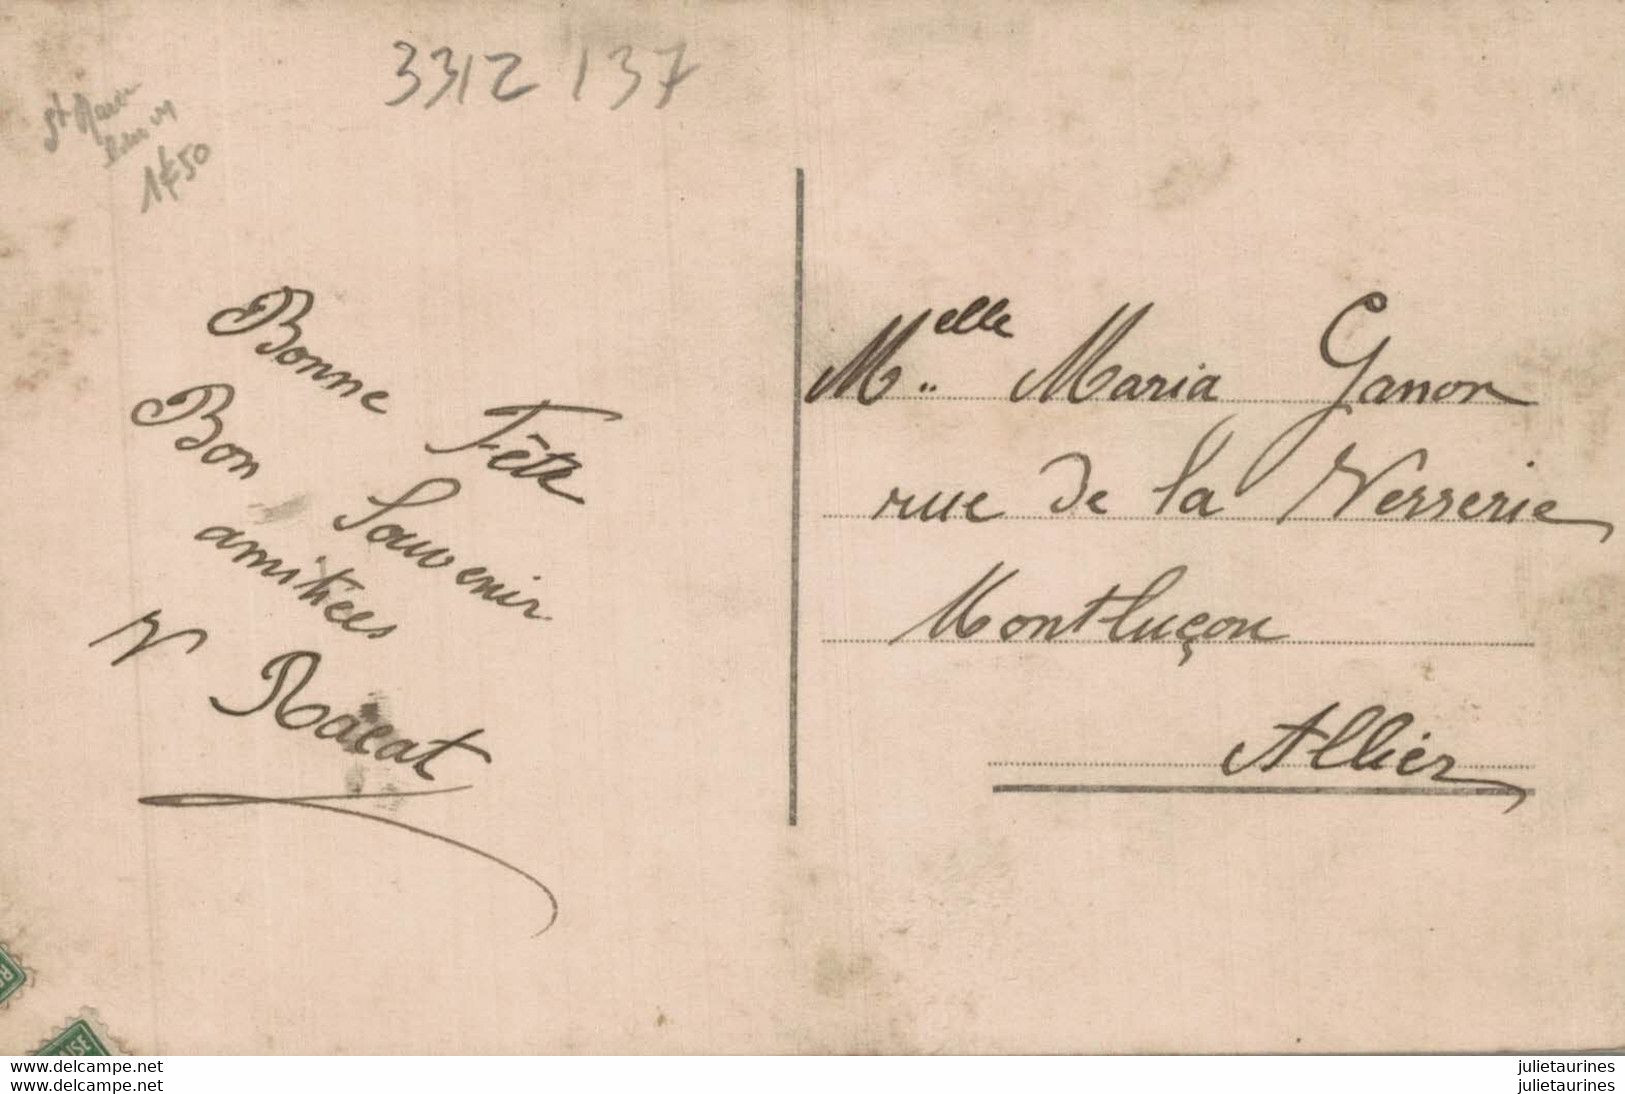 3312 137
1€50
Bonne Fête
Bon Souvenir
amitiées
V Racat
Melle Maria Ganon
rue de la Verrerie
Montluçon
Allier
website: www.delcampe.net
website: www.delcampe.net
julietaurines
julietaurines